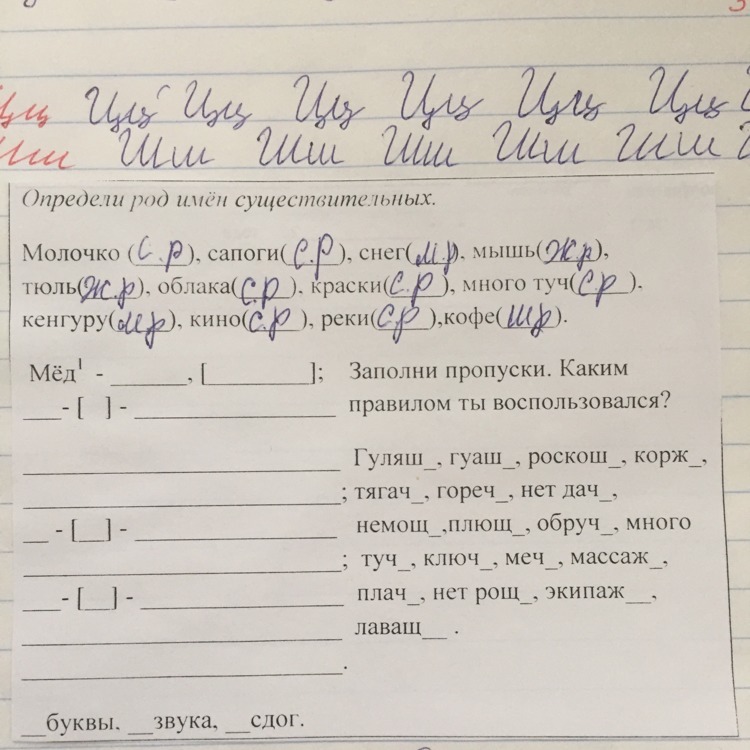 Цц Цц Цц Цц Цц Цц Цц
Шш Шш Шш Шш Шш Шш
Определи род имён существительных.
Молочко (с.р), сапоги(с.р), снег(м.р), мышь(ж.р),
тюль(ж.р), облака(с.р), краски(с.р), много туч(с.р).
кенгуру(м.р), кино(с.р), реки(с.р),кофе(м.р).
Мёд¹ - ______, [________];
___- [ ] - ________________
_________________________
_________________________;
__ - [__] - ________________
_________________________;
___- [__] - ________________
_________________________
_________________________.
__буквы. __звука, __сдог.
Заполни пропуски. Каким
правилом ты воспользовался?
Гуляш_, гуаш_, роскош_, корж_,
тягач_, гореч_, нет дач_,
немощ_,плющ_, обруч_, много
туч_, ключ_, меч_, массаж_,
плач_, нет рощ_, экипаж__,
лаващ__ .